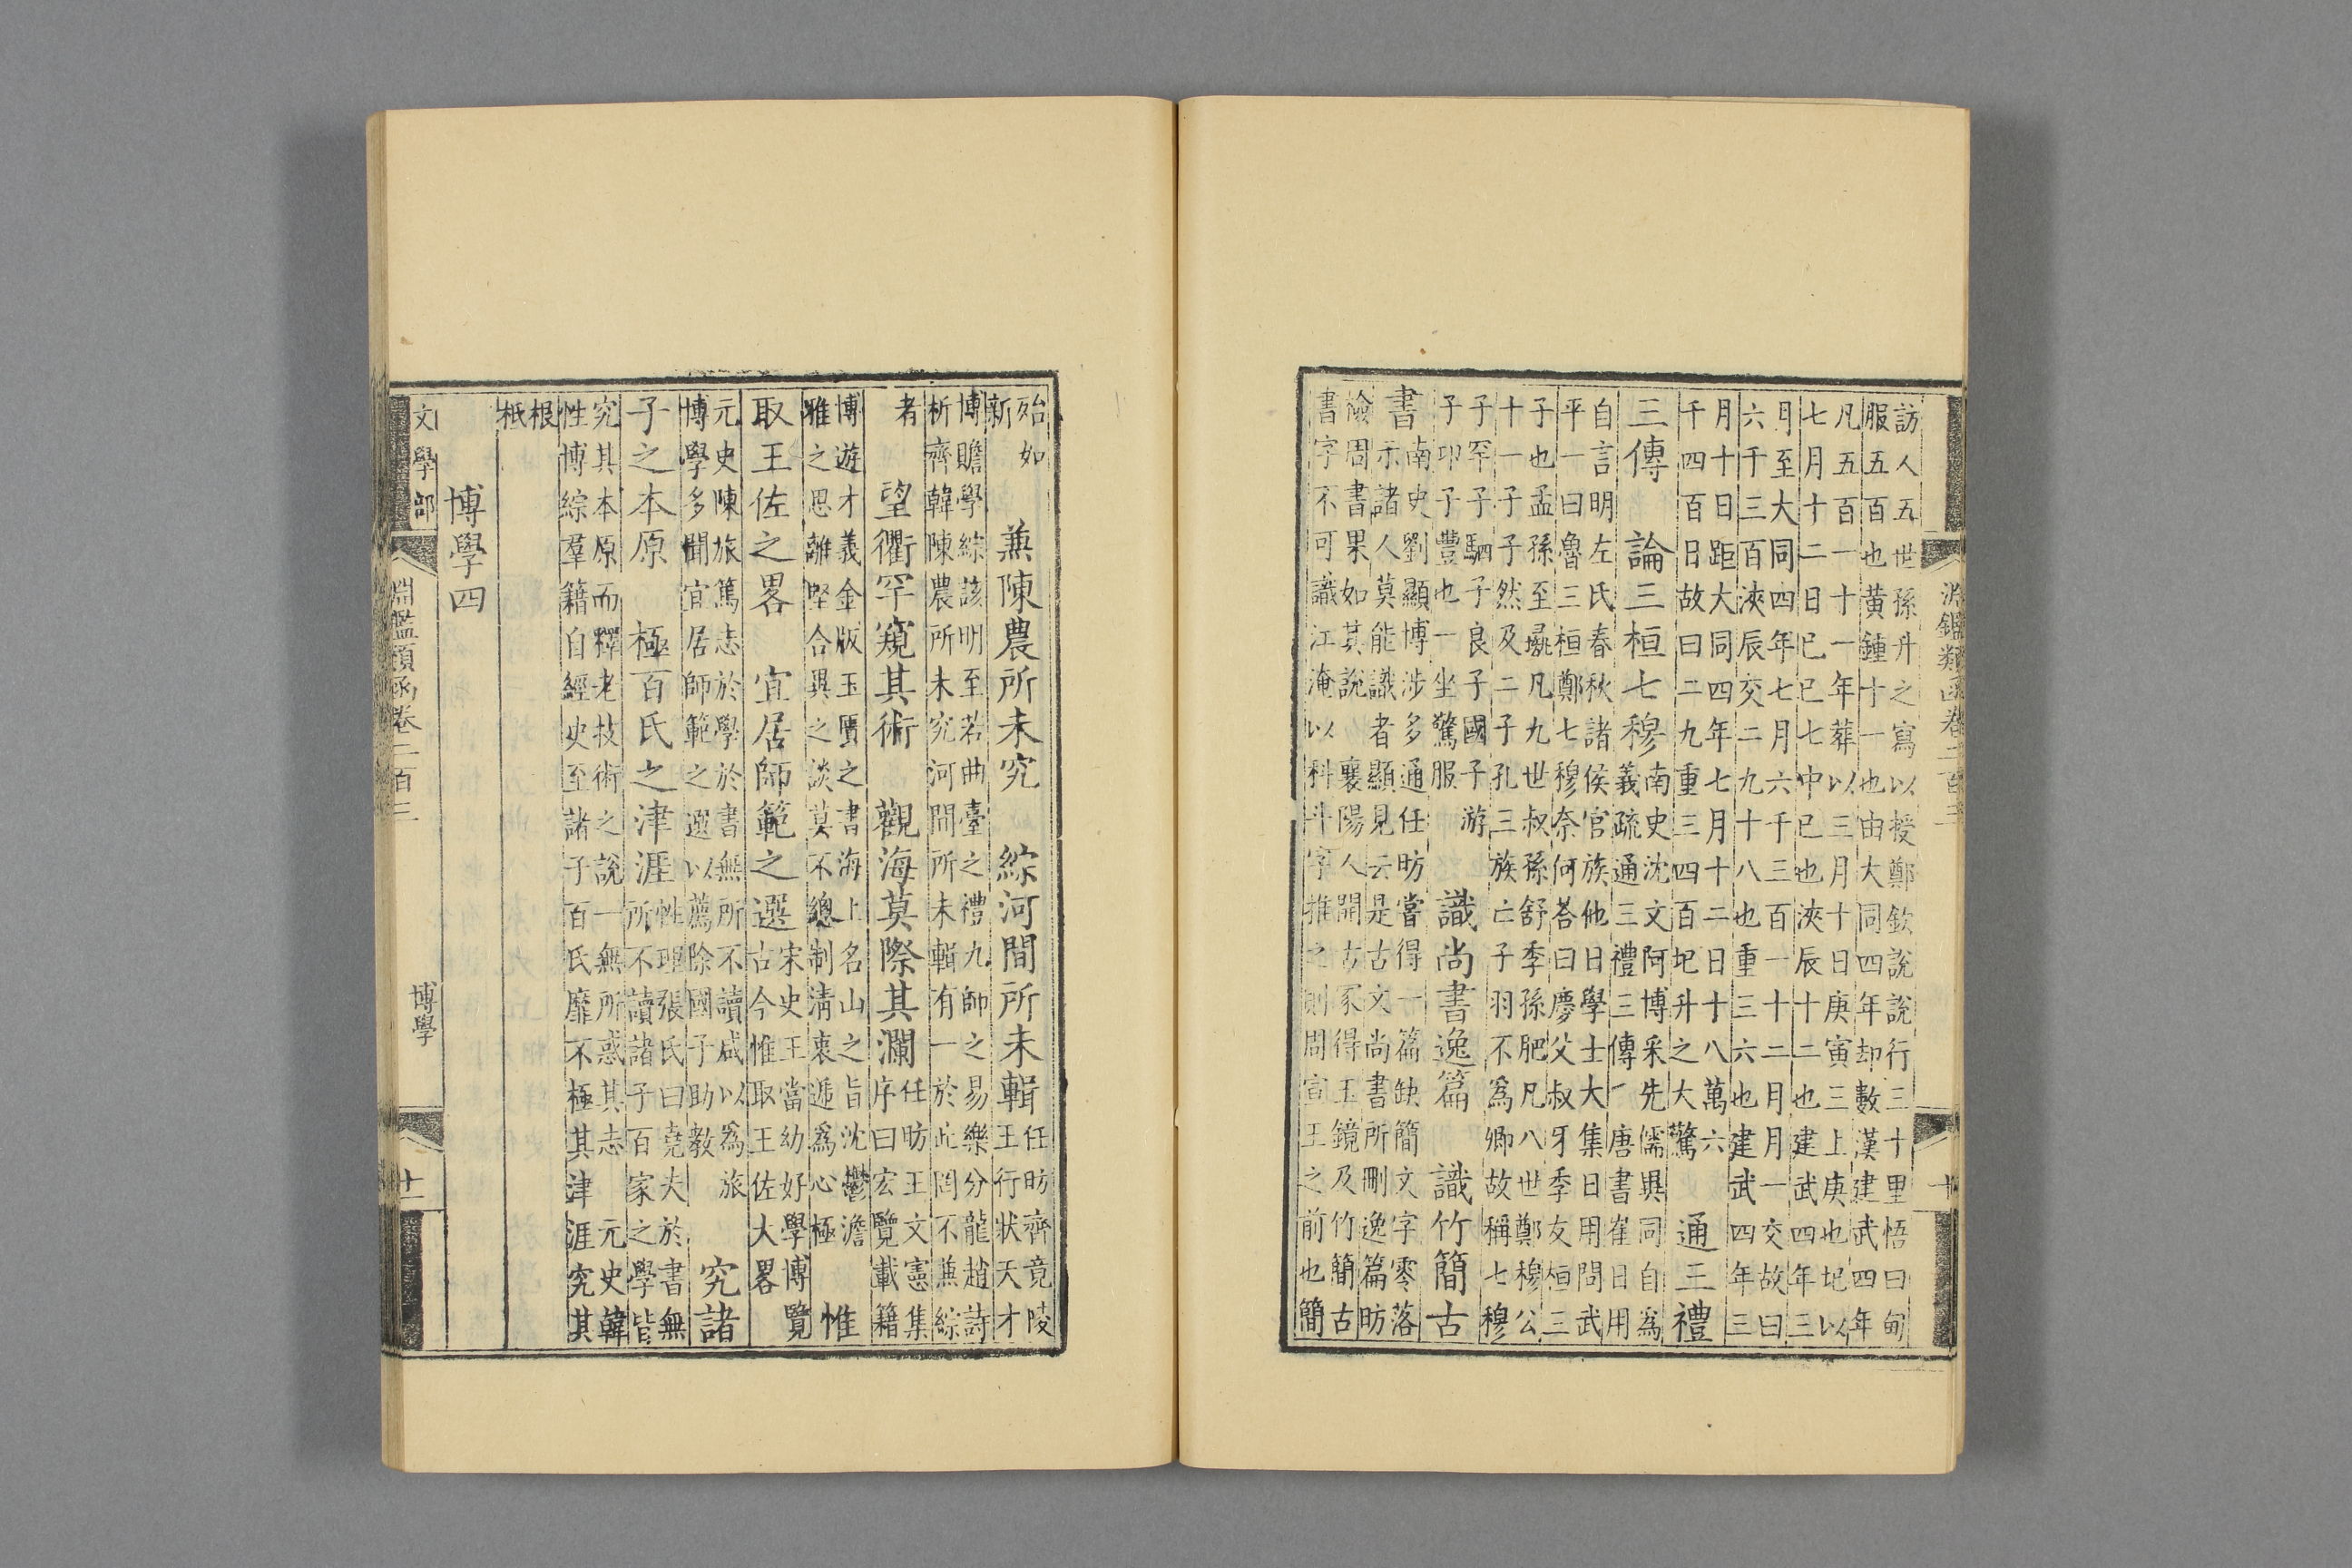 淵鑑類函卷二百三 十
訪人五世孫升之寫以授鄭欽說說行三十里悟曰甸
服五百也黃鍾十一也由大同四年却數漢建武四年
凡五百一十一年葬以三月十日庚寅三上庚也圮以
七月十二日巳巳七中巳也浹辰十二也建武四年三
月至大同四年七月六千三百一十二月月一交故曰
六千三百浹辰交二九十八也重三六也建武四年三
月十日距大同四年七月十二日十八萬六
千四百日故曰二九重三四百圮升之大驚
通三禮
三傳 論三桓七穆
南史沈文阿博采先儒異同自爲
義疏通三禮三傳 唐書崔日用
自言明左氏春秋諸侯官族他日學士大集日用問武
平一曰魯三桓鄭七穆奈何荅曰慶父叔牙季友桓三
子也孟孫至彘凡九世叔孫舒季孫肥凡八世鄭穆公
十一子子然及二子孔三族亡子羽不爲卿故稱七穆
子罕子駟子良子國子游
子印子豐也一坐驚服
識尚書逸篇 識竹簡古
書
南史劉顯博涉多通任昉嘗得一篇缺簡文字零落
示諸人莫能識者顯見云是古文尚書所刪逸篇昉
檢周書果如其說 襄陽人開古冢得玉鏡及竹簡古
書字不可識江淹以科斗字推之則問宣王之前也簡
殆如
新
兼陳農所未究 綜河間所未輯
任昉齊竟陵
王行狀天才
博贍學綜該明至若曲臺之禮九師之易樂分龍趙詩
析齊韓陳農所未究河間所未輯有一於此罔不兼綜
者
望衢罕窺其術 觀海莫際其瀾
任昉王文憲集
序曰宏覽載籍
博遊才義金版玉匱之書海上名山之旨沈鬱澹
雅之思離堅合異之談莫不總制清衷遞爲心極
惟
取王佐之畧 宜居師範之選
宋史王當幼好學博覽
古今惟取王佐大畧
元史陳旅篤志於學於書無所不讀咸以爲旅
博學多聞宜居師範之選以薦除國子助教
究諸
子之本原 極百氏之津涯
性理張氏曰堯夫於書無
所不讀諸子百家之學皆
究其本原而釋老技術之說一無所惑其志 元史韓
性博綜羣籍自經史至諸子百氏靡不極其津涯究其
根
柢
博學四
文學部 淵鑑類函卷二百三 博學 十一